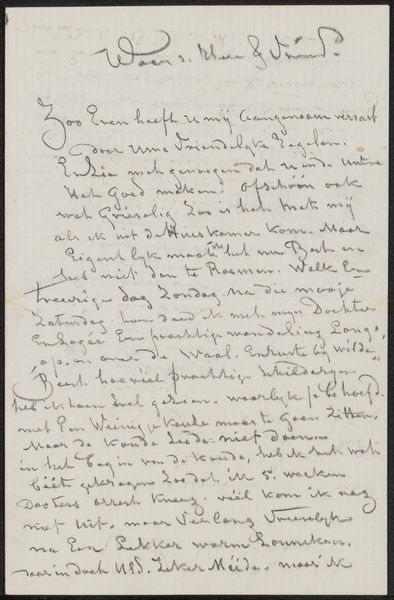 Waar
Zoo Even heeft u mij Aangenaam verrast
door Uwe Vriendelijke Regelen.
En Zie met genoegen dat u
het Goed maken. Ofschoon ook
wat Grieselig Zoo is het met mij
als ik uit de Huiskamer kom. Maar
Eigentlyk maak het nu Best en
heb niet dan te Roemen. Welk Een
treurige dag Zondag na die mooje
Zaturdag. toen deed ik met myn Dochter
En Logée Een prachtige wandeling Langs,
op, en over de Waal. En ruste by wilde
Beest hoeveel prachtige Schilderyen
heb ik daar wel gezien. waarlyk je behoefd
met Een Weinig maar te Gaan Zitten.
Maar de Koude niet doen.
in het begin van de Koude, heb ik het wat
beet gekregen Zoodat ik 5 weeken
Dokters kreeg. véél kom ik nog
niet Uit, maar Verlang Vrienlyk
na Een Lekker warm Zonnetje.
daarin doch UEd. Zeker Méede. maar ik